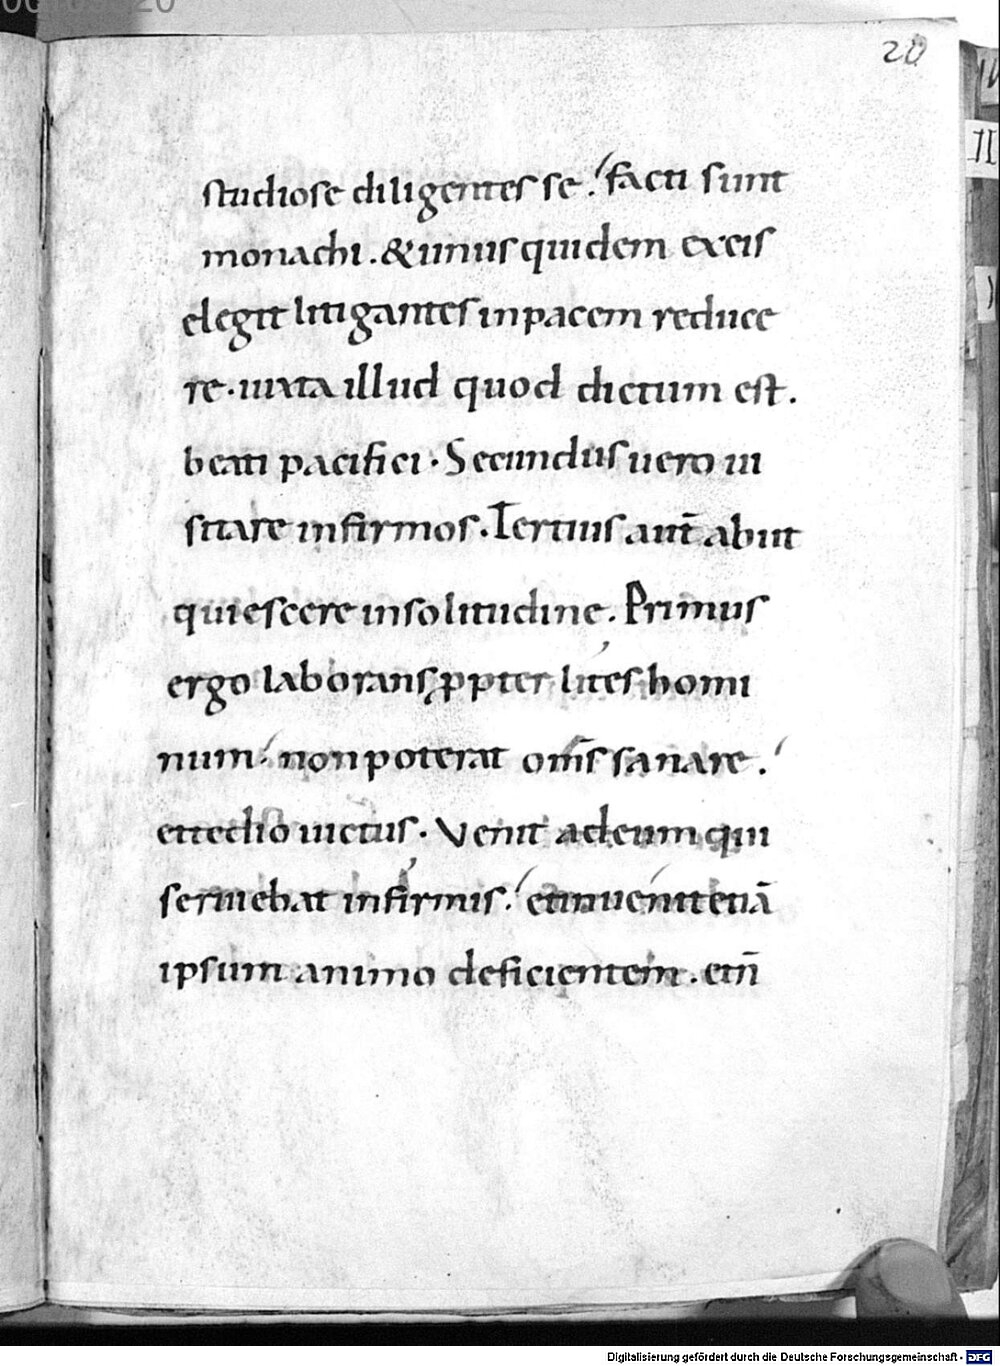 20
studiose diligentes se. facti sunt
monachi. & unus quidem exeis
elegit litigantes inpacem reduce
re. iuxta illud quod dictum est.
beati pacifici. Secundus uero ui
sitare infirmos. Tertius aut̄ abiit
quiescere insolitudine. Primus
ergo laborans ꝓpter lites homi
num. non poterat om̄s sanare.
et tedio uictus. Venit adeum qui
seruiebat infirmis. et inuenit etiā
ipsum animo deficientem. et n̄
Digitalisierung gefördert durch die Deutsche Forschungsgemeinschaft - DFG